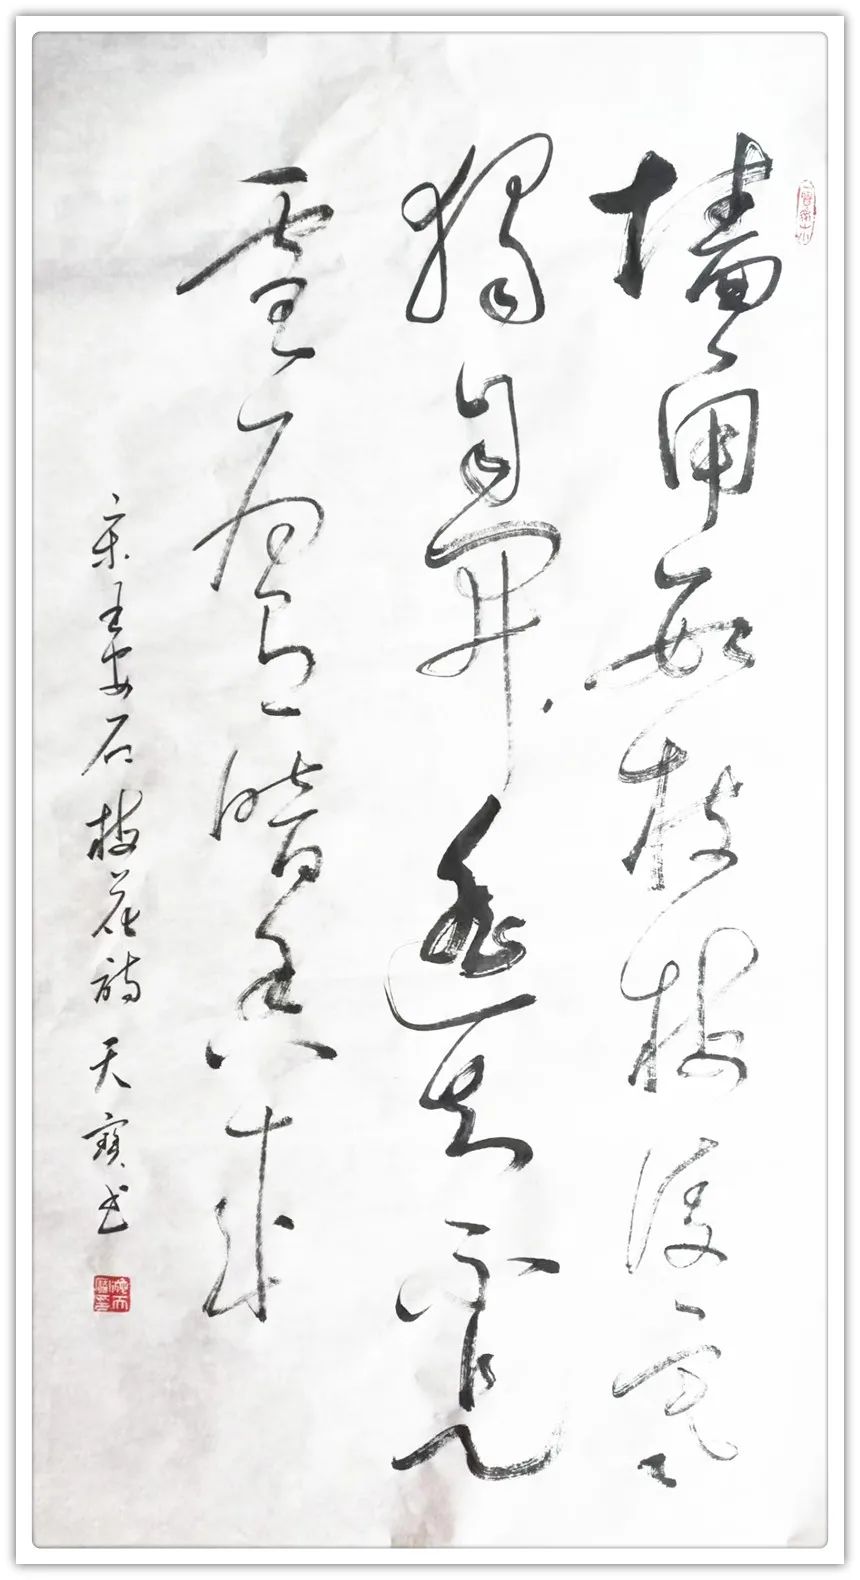 墙角数枝梅凌寒
獨自開遥知不是
雪為有暗香来
宋王安石梅花詩 天寶书